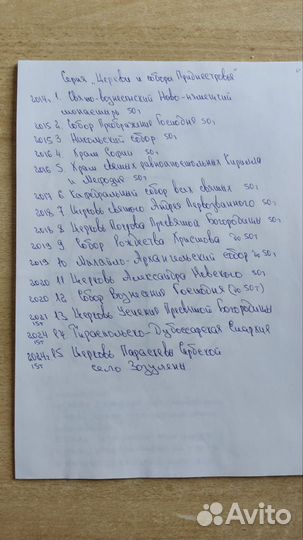 Серия "Церкви и соборы Приднестровья"
2014, 1. Свято-вознесенский Ново-нямецкий
монастырь 50т
2015 2. Собор Преображения Господня 50т
2015 3. Никольский собор 50т
2016 4. Храм Софии 50т
2016 5. Храм святых равноапостольных Кирилла
и Мефодия 50т
2017 6 Кафедральный собор всех святых 50т
2018 7 Церковь святого Андрея Первозванного 50т
2018 8 Церковь Покрова Пресвятой Богородицы 50т
2019 9 Собор Рождества Христова 50т
2019 10 Михайло-Архангельский собор 50т
2020 11 Церковь Александра Невского 50т
2020 12 Собор Вознесения Господня (50т)
2021 13 Церковь Успения Пресвятой Богородицы
15т
2024 Тираспольско-Дубоссарская Епархия
15т
2024, 15 Церковь Параскевы Сербской
15т село Зозуляны
Avito